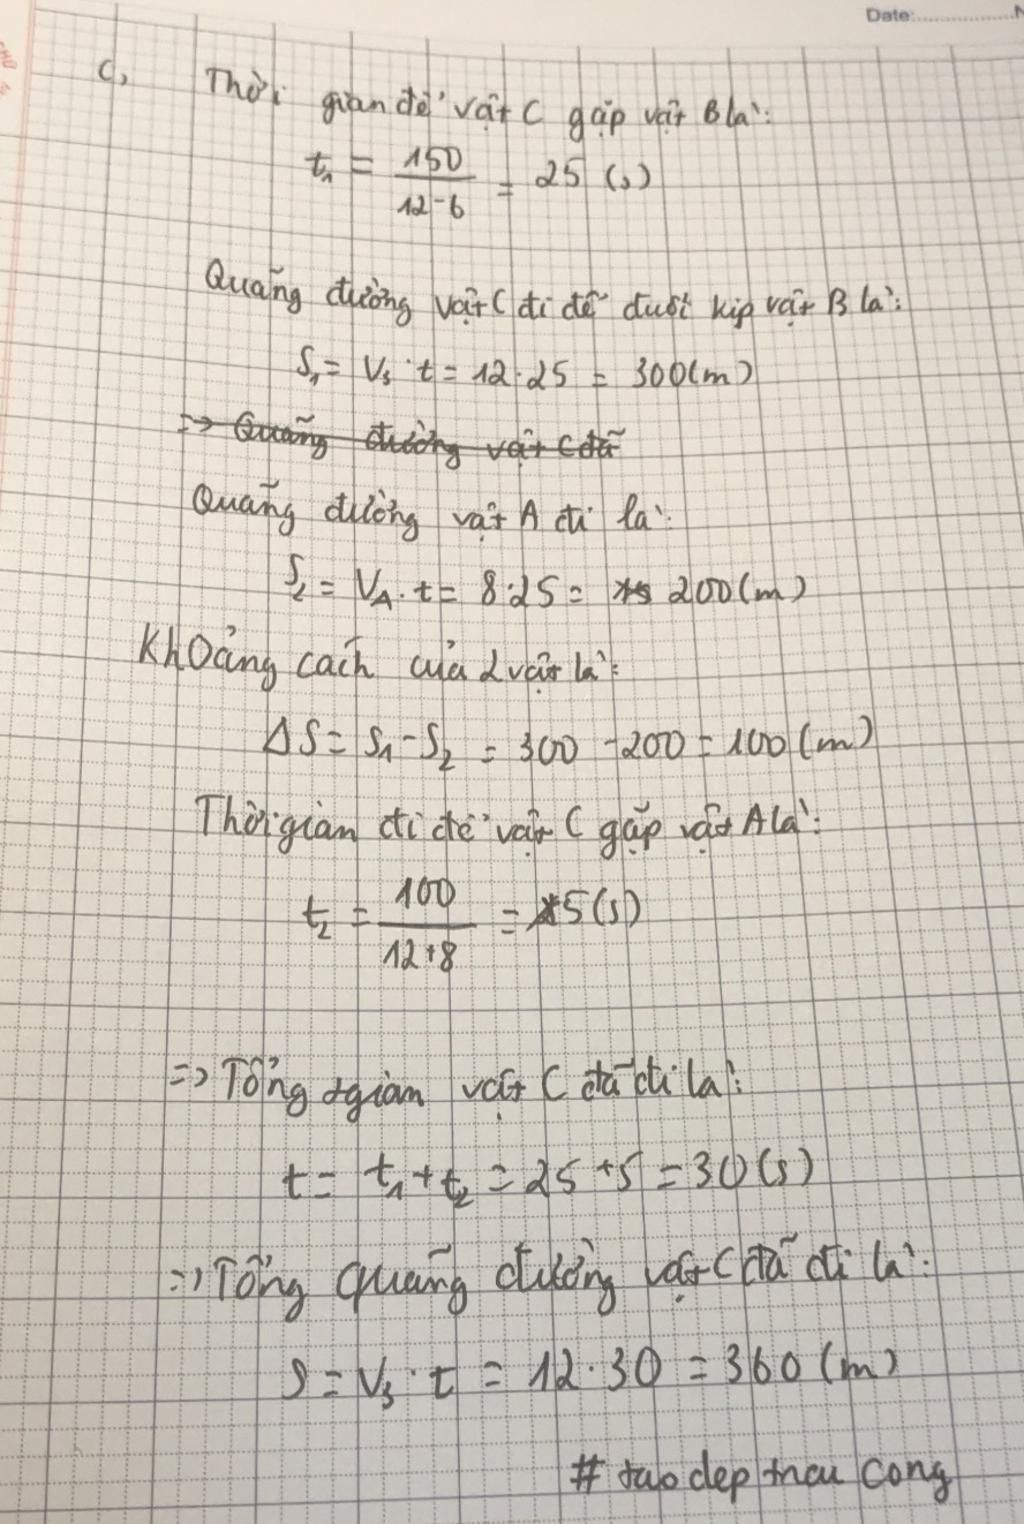 Date:
c, Thời gian để vật C gặp vật B là:
t₁ = 150/(12-6) = 25 (s)
Quãng đường vật C đi để đuổi kịp vật B là:
S₁ = V₃ · t = 12·25 = 300(m)
=> Quãng đường vật C đã
Quãng đường vật A đi là:
S₂ = V_A · t = 8·25 = 200(m)
Khoảng cách của 2 vật là:
ΔS = S₁ - S₂ = 300 - 200 = 100 (m)
Thời gian đi để vật C gặp vật A là:
t₂ = 100/(12+8) = 5(s)
=> Tổng tgian vật C đã đi là:
t = t₁ + t₂ = 25 + 5 = 30 (s)
=> Tổng quãng đường vật C đã đi là:
S = V₃ · t = 12·30 = 360 (m)
# tao dep trai cong